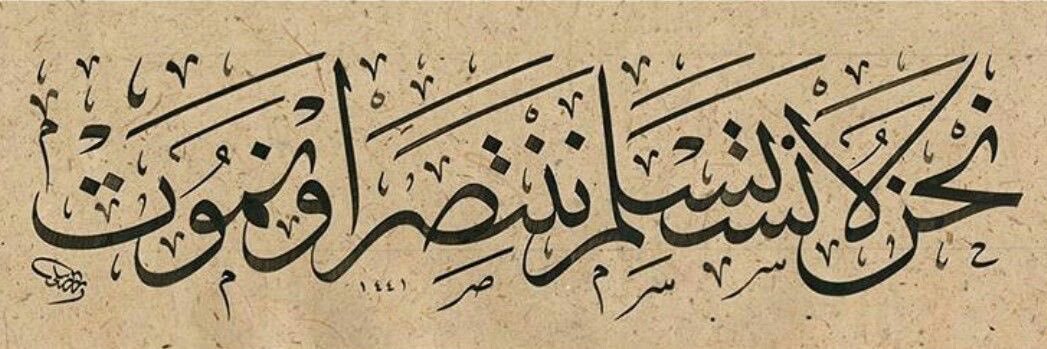 نحن لا نستسلم ننتصر او نموت
١٤٤١